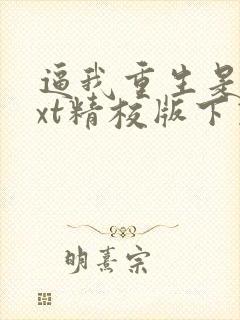 逼我重生是
xt精校版下
明熹宗